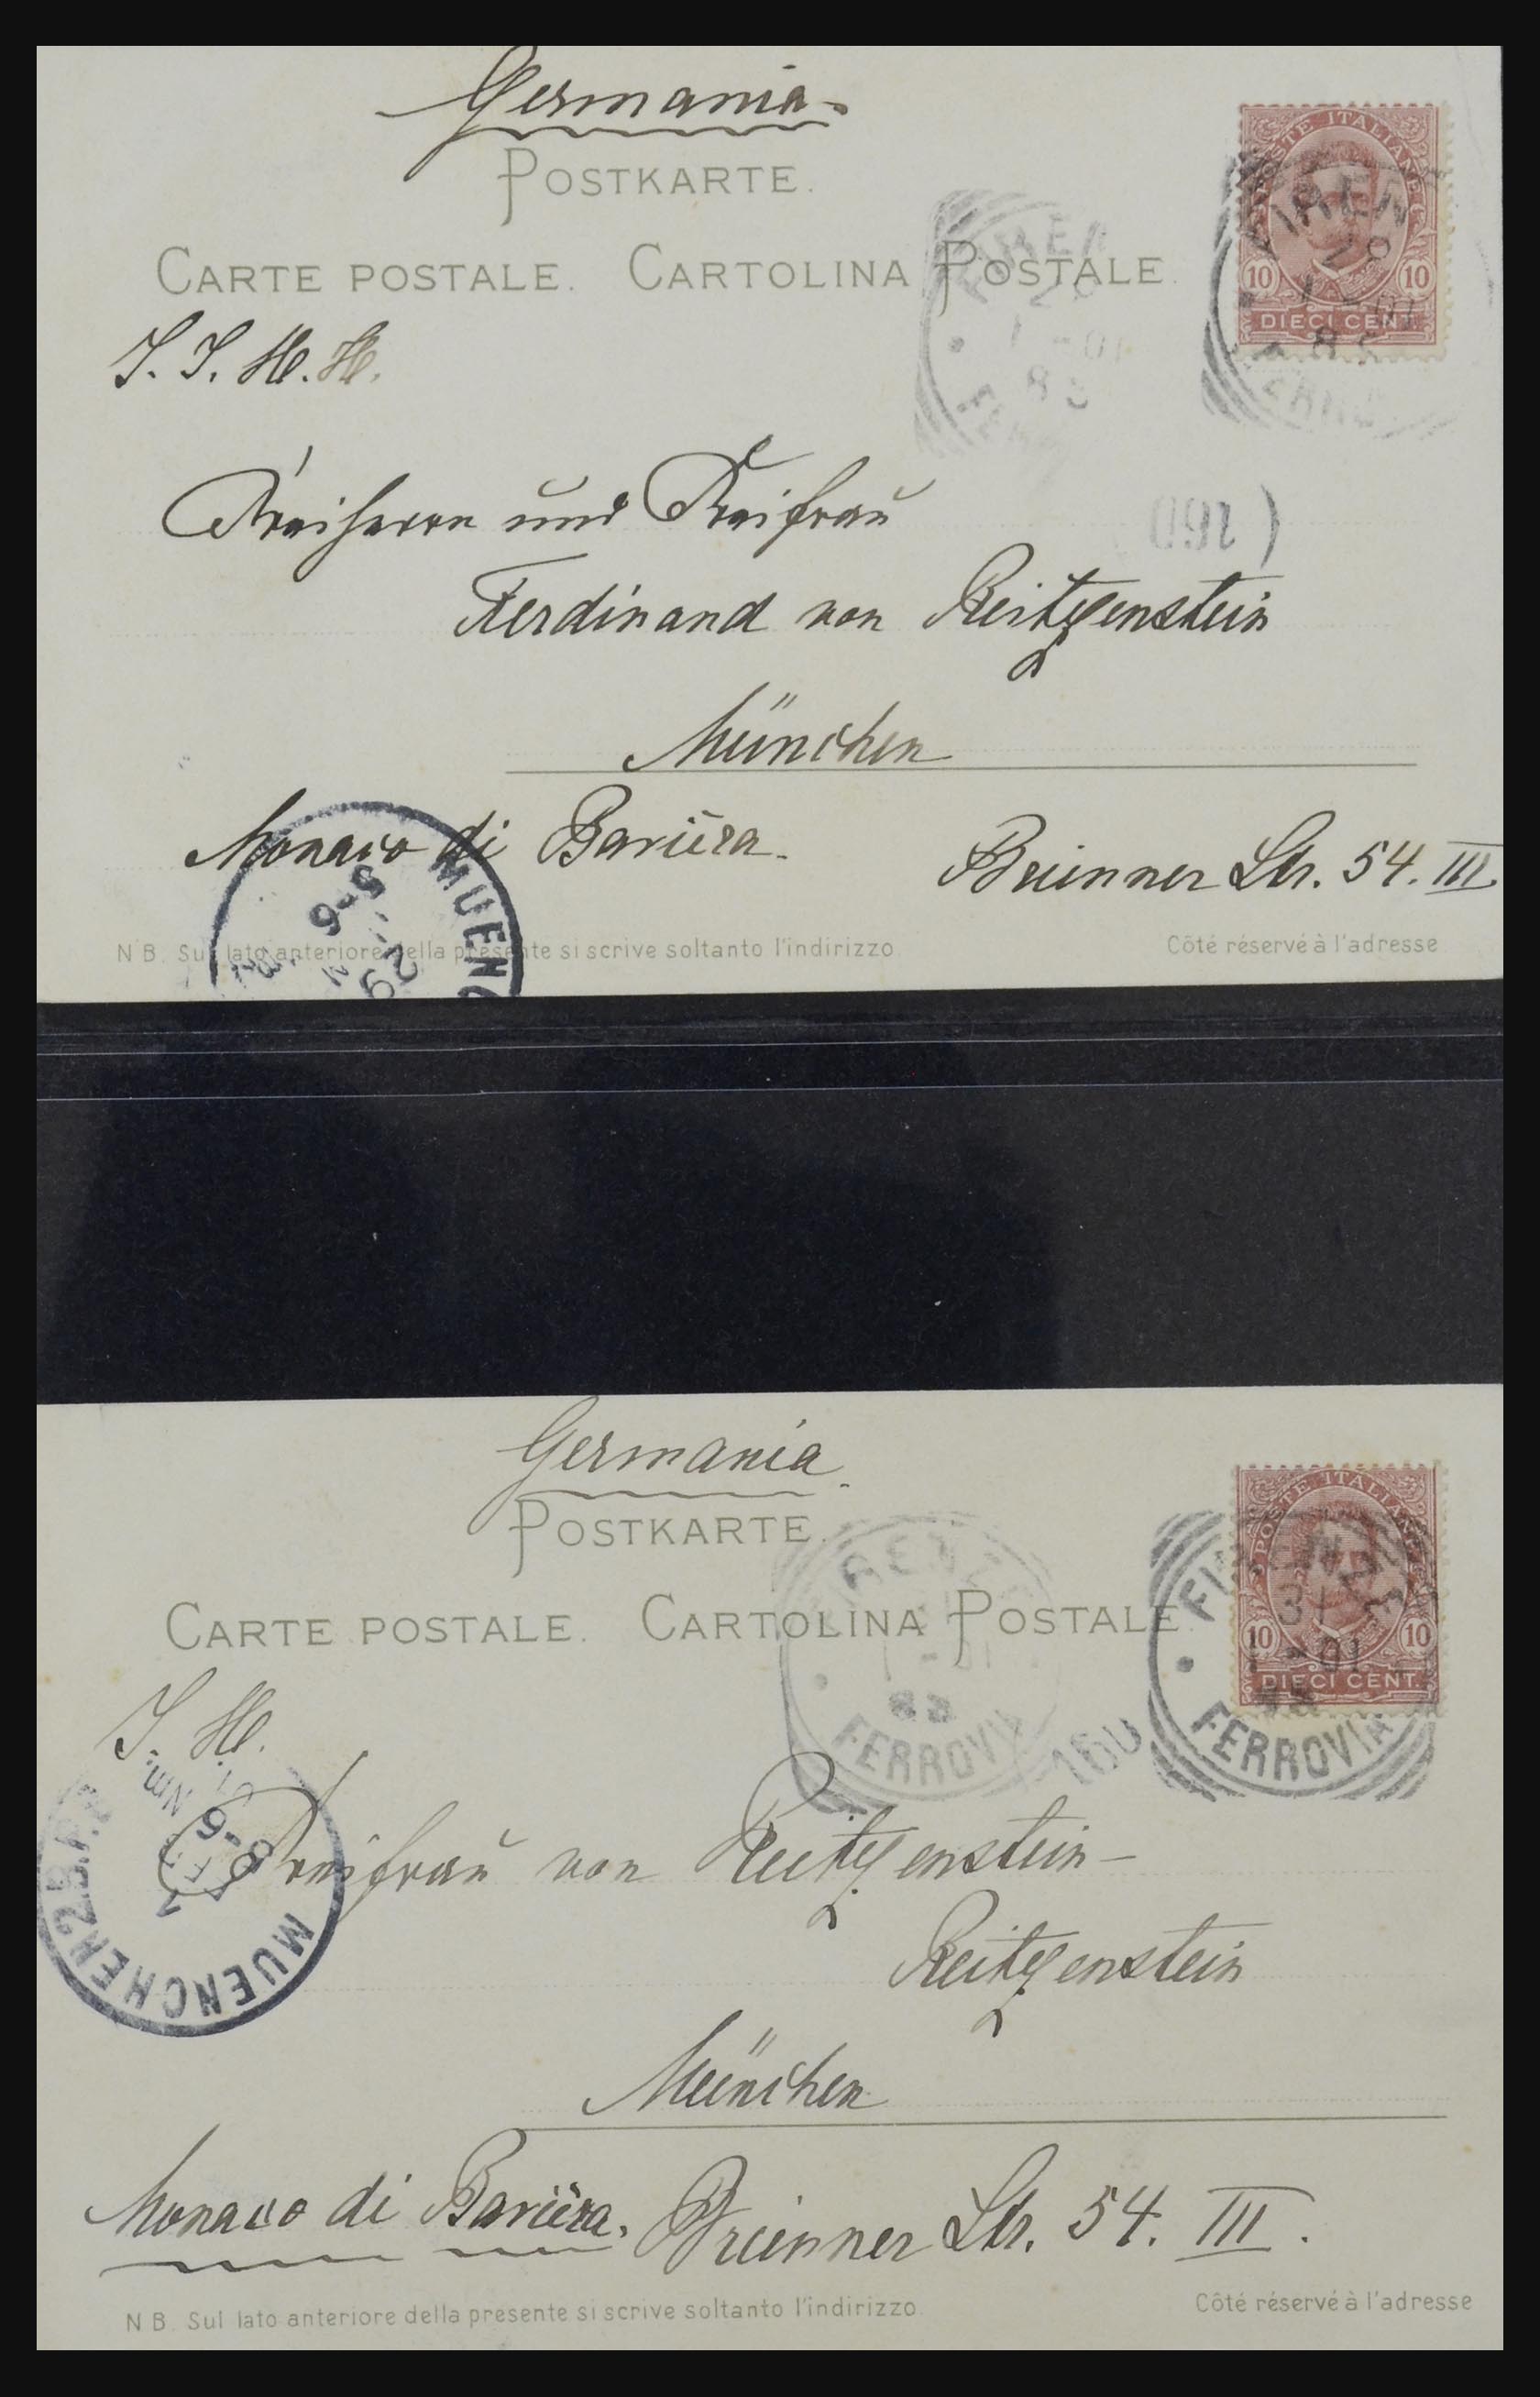 Germania.
POSTKARTE.
CARTE POSTALE. CARTOLINA POSTALE.
POSTE ITALIANE
10 10
DIECI CENT.
FIREN
29
1-01
8 S
FIREN
1-01
8 S
I. I. H. H.
Freiherrn und Freifrau
(160
Ferdinand von Reitzenstein
München
Monaco di Baviera.
Brienner Str. 54. III.
MUENC
5-6
N B. Sul lato anteriore della presente si scrive soltanto l'indirizzo
Côté réservé à l'adresse
Germania.
POSTKARTE.
CARTE POSTALE. CARTOLINA POSTALE.
POSTE ITALIANE
10 10
DIECI CENT.
FIRENZE
31
1-01
8S
FERROVIA
FIRENZE
1-01
8S
FERROVIA
160
I. H.
Freifrau von Reitzenstein-
Reitzenstein
MUENCHEN 2.B.P.
5-6 Nm.
München
Monaco di Baviera. Brienner Str. 54. III.
N B. Sul lato anteriore della presente si scrive soltanto l'indirizzo
Côté réservé à l'adresse